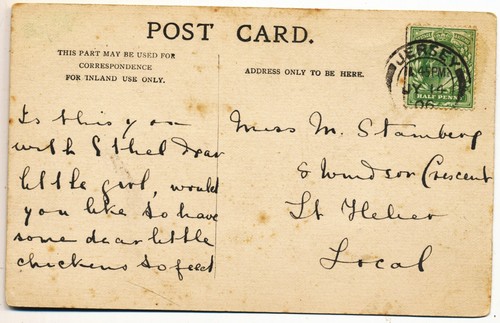 POST CARD.
THIS PART MAY BE USED FOR
CORRESPONDENCE
FOR INLAND USE ONLY.
ADDRESS ONLY TO BE HERE.
JERSEY
PM
JY 14
06
HALF PENNY
Is this you
with Ethel dear
little girl, would
you like to have
some dear little
chickens to feed
Miss M. Stamberg
8 Windsor Crescent
St Helier
Local